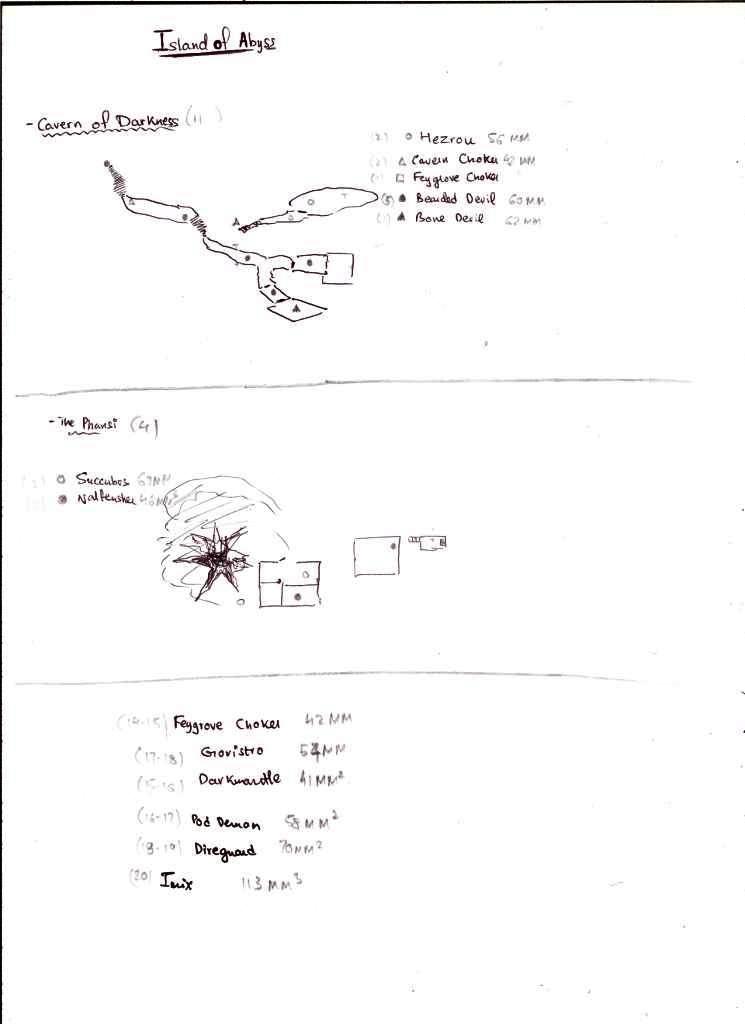 Island of Abyss
- Cavern of Darkness (11)
(2) Hezrou 56 MM
(2) Cavern Choker 42 MM
(1) Feygrove Choker
(5) Bearded Devil 60 MM
(1) Bone Devil 62 MM
T
T
- The Phansi (4)
Succubus 67 MM
T
(14-15) Feygrove Choker 42 MM
(17-18) Goristro 54 MM
(15-16) Darkmantle 41 MM²
(16-17) Pod Demon 58 MM²
(18-19) Direguard 70 MM²
(20) Imix 113 MM³